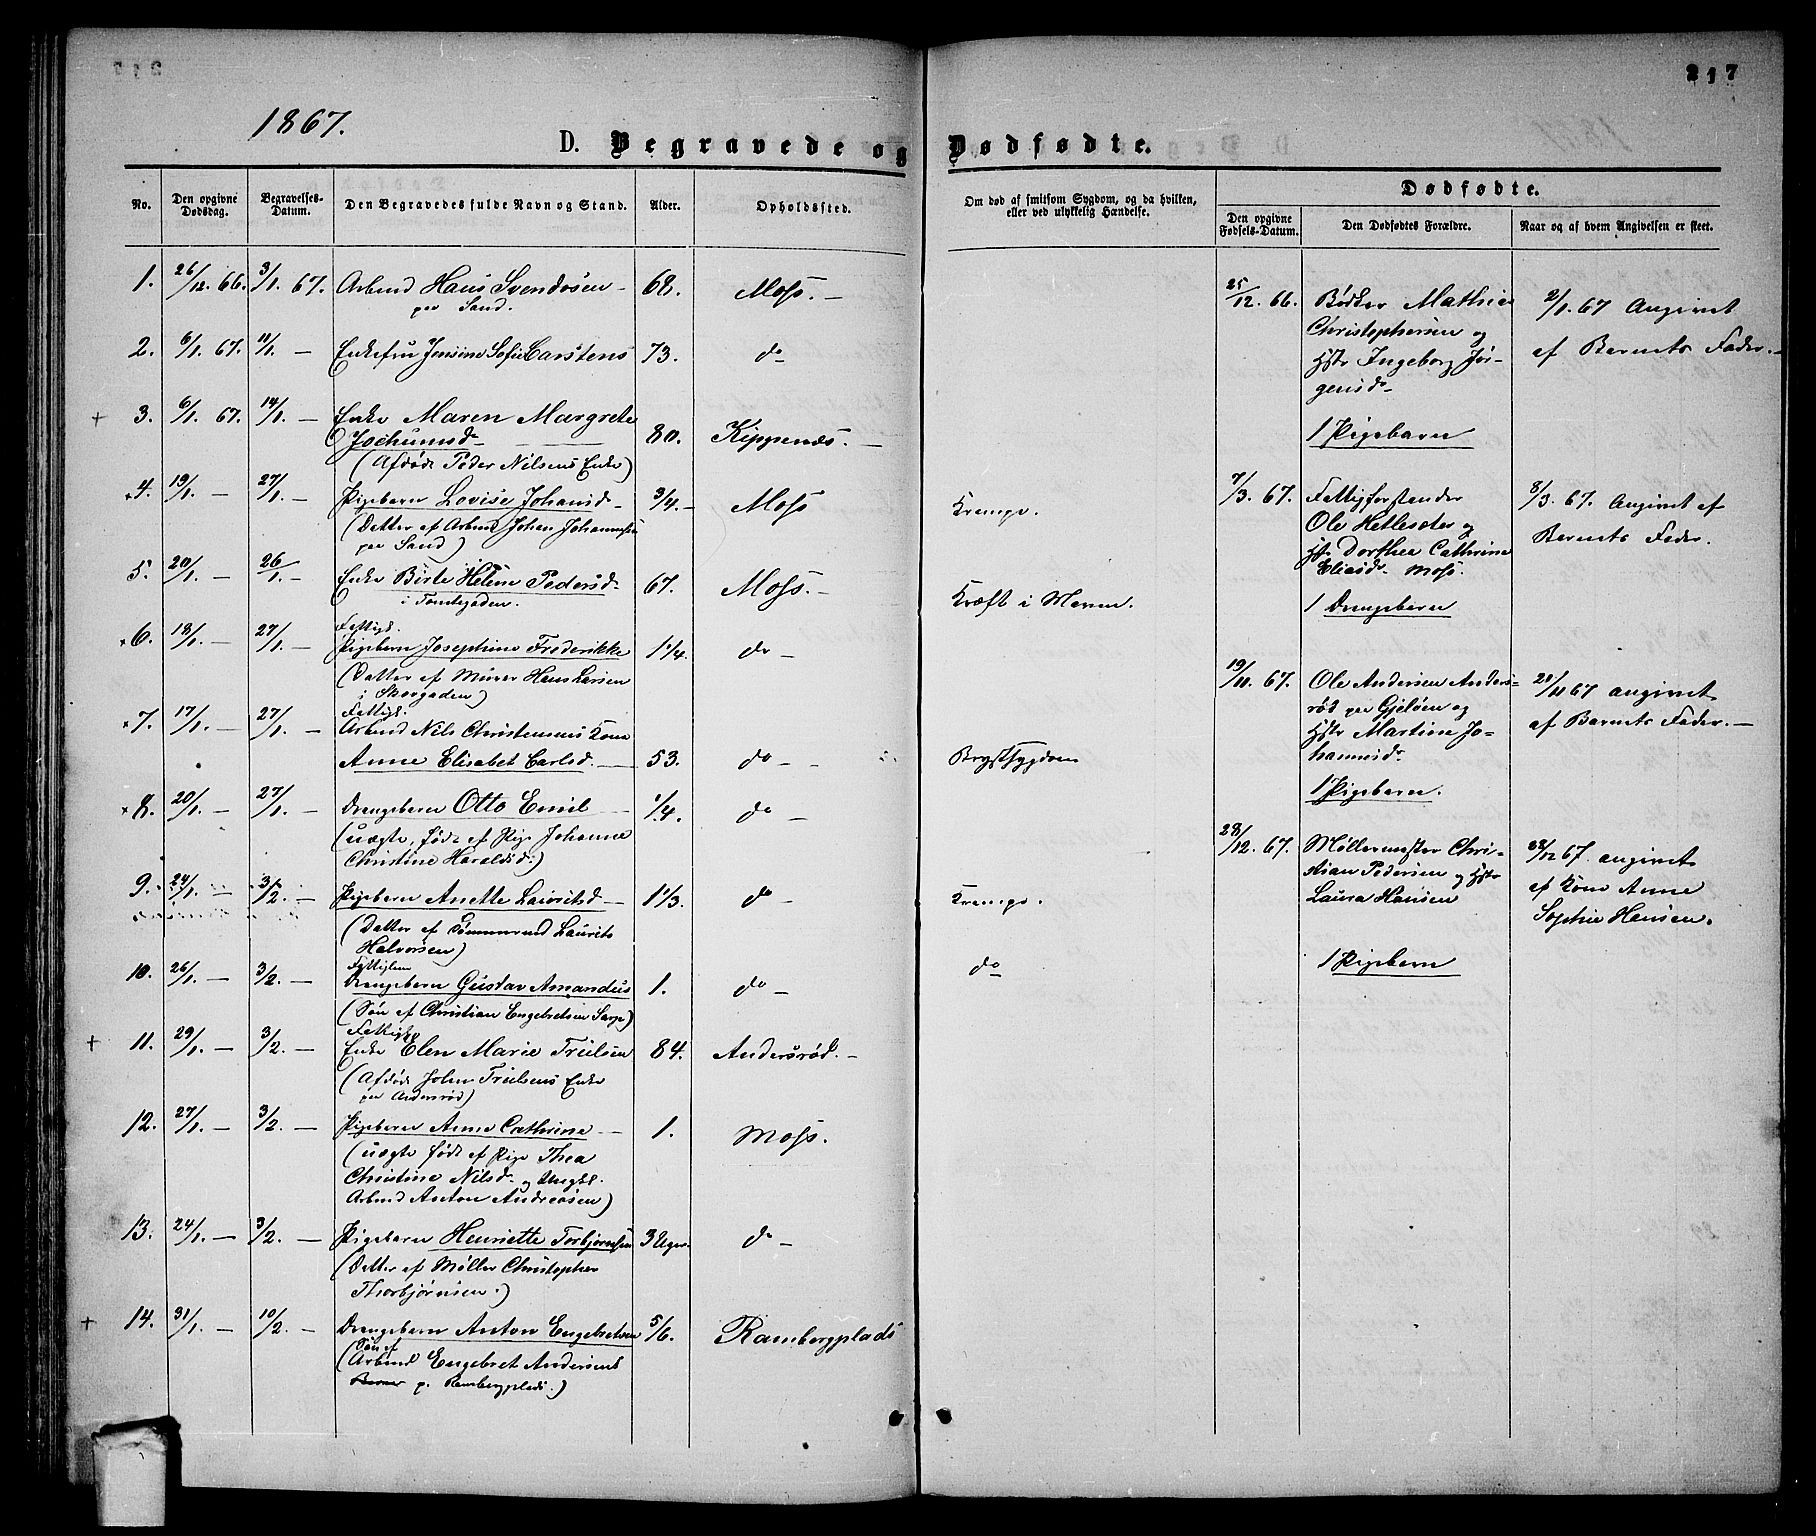 217
1867.
D. Begravede og Dødfødte.
No.
Den opgivne Dødsdag.
Begravelses-Datum.
Den Begravedes fulde Navn og Stand.
Alder.
Opholdssted.
Om død af smitsom Sygdom, og da hvilken,
eller ved ulykkelig Hændelse.
Dødfødte.
Den opgivne Fødsels-Datum.
Den Dødfødtes Forældre.
Naar og af hvem Angivelsen er skeet.
1. 26/12. 66. 3/1. 67. Arbmd Hans Svendsen 68. Moss.
paa Sand.
2. 6/1. 67. 11/1. — Enkefru Jensine Sofie Carstens 73. do
+ 3. 6/1. 67. 14/1. — Enke Maren Margrete
Jochumsd 80. Kippenæs.
(Afdøde Peder Nilsens Enke)
4. 19/1. — 27/1. — Pigebarn Lovise Johansd. 3/4. Moss Krampe.
(Datter af Arbmd Johan Johannesen
paa Sand)
5. 20/1. — 26/1. — Enke Birte Helene Pedersd. 67. Moss. Kræft i Maven.
i Tomtegaden.
Fattigl.
6. 18/1. — 27/1. — Pigebarn Josephine Frederikke 1 1/4. do
(Datter af Murer Hans Larsen
i Skovgaden)
Fattigl.
7. 17/1. — 27/1. — Arbmd Nils Christensens Kone
Anne Elisabet Carlsd. 53. do Brystsygdom
8. 20/1. — 27/1. — Drengebarn Otto Emil 1/4. do
(uægte, født af Pige Johanne
Christine Haraldsd.)
9. 24/1. — 3/2. — Pigebarn Anette Lauritsd 1 1/3. do Krampe.
(Datter af Tømmermd Laurits
Halvorsen)
10. 26/1. — 3/2. — Drengebarn Gustav Amandus 1. do do
(Søn af Christian Engebretsen)
Fattigl.
+ 11. 29/1. — 3/2. — Enke Elen Marie Trulsen 84. Andersrød.
(Afdøde John Trulsens Enke
paa Andersrød)
12. 27/1. — 3/2. — Pigebarn Anne Cathrine 1. Moss.
(uægte født af Pige Thea
Christine Nilsd. og Ungkl.
Arbmd Anton Andreasen)
13. 24/1. — 3/2. — Pigebarn Henriette Torbjørnsen 3 Uger. do
(Datter af Møller Christopher
Thorbjørnsen.)
+ 14. 31/1. — 10/2. — Drengebarn Anton Engebretsen 5/6. Rambergplads
(Søn af
Arbmd Engebret Andersens
p. Rambergplads.)
25/12. 66. Bødker Mathias 2/1. 67 Angivet
Christophersen og af Barnets Fader.
Hstr Ingeborg Jør-
gensd
1 Pigebarn
7/3. 67. Fattigforstander 8/3. 67. Angivet af
Ole Hetlesæter og Barnets Fader.
Hstr Dorthea Cathrine
Eliasd. Moss.
1 Drengebarn
19/11. 67. Ole Andersen Anders- 20/11 67 angivet
rød paa Gjeløen og af Barnets Fader.
Hstr Martine Jo-
hannesd.
1 Pigebarn.
28/12. 67. Møllermester Chri- 28/12 67. angivet
stian Pedersen og Hstr af Kone Anne
Laura Hansen Sophie Hansen.
1 Pigebarn